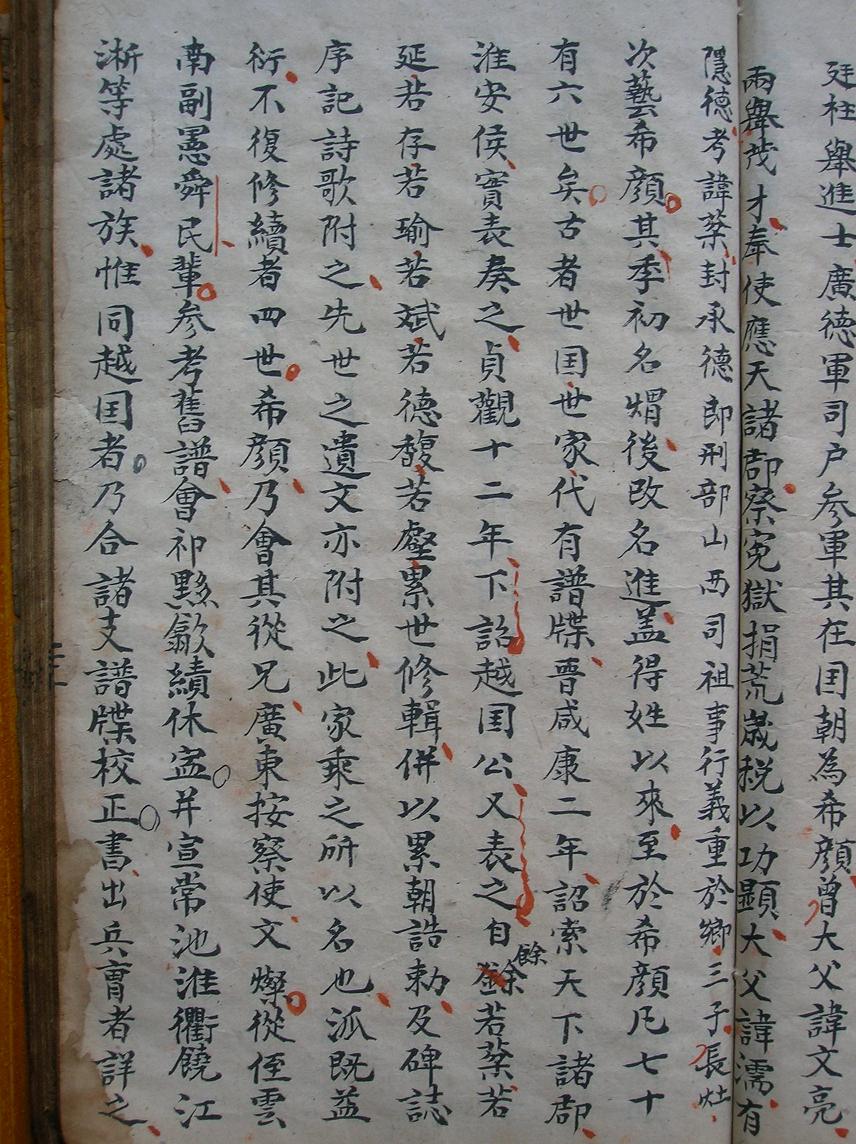 廷柱舉進士廣德軍司户參軍其在囯朝為希顔曾大父諱文亮
兩舉茂才奉使應天諸郡察寃獄捐荒歲税以功顯大父諱濡有
隱德考諱棻封承德郎刑部山西司祖事行義重於鄉三子長灶
次藝希顔其季初名焆後改名進盖得姓以來至於希顔凡七十
有六世矣古者世囯世家代有譜牒晉咸康二年詔索天下諸郡
淮安侯實表奏之貞觀十二年下詔越囯公又表之自餘若棻若
延若存若瑜若斌若德馥若壑累世修輯併以累朝誥勅及碑誌
序記詩歌附之先世之遺文亦附之此家乘之所以名也派既益
衍不復修續者四世希顔乃會其從兄廣東按察使文燦從侄雲
南副憲舜民輩參考舊譜會祁黟歙績休寍并宣常池淮衢饒江
淅等處諸族惟同越囯者乃合諸支譜牒校正書出兵胄者詳之